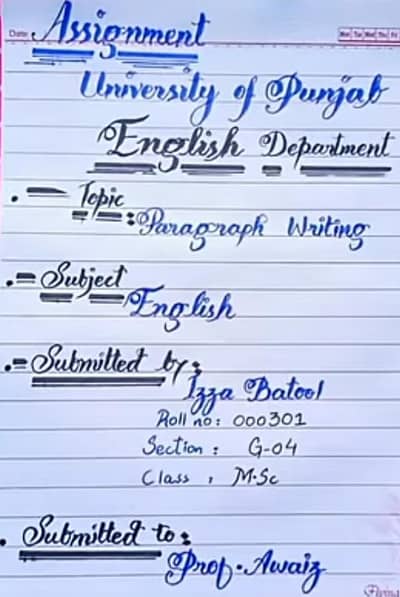 Date:
Assignment
Mon Tue Wed Thu Fri
University of Punjab
English Department
Topic :
Paragraph Writing
Subject
English
Submitted by :
Izza Batool
Roll no : 000301
Section : G-04
Class : M.Sc
Submitted to :
Prof. Awaiz